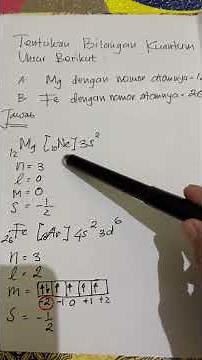 Tentukan Bilangan Kuantum
Unsur Berikut :
A Mg dengan nomor atomnya =
B Fe dengan nomor atomnya = 26
Jawab
₁₂Mg [₁₀Ne] 3s²
n = 3
l = 0
m = 0
s = -1/2
₂₆Fe [₁₈Ar] 4s² 3d⁶
n = 3
l = 2
m = ↑↓ ↑ ↑ ↑ ↑
-2 -1 0 +1 +2
s = -1/2